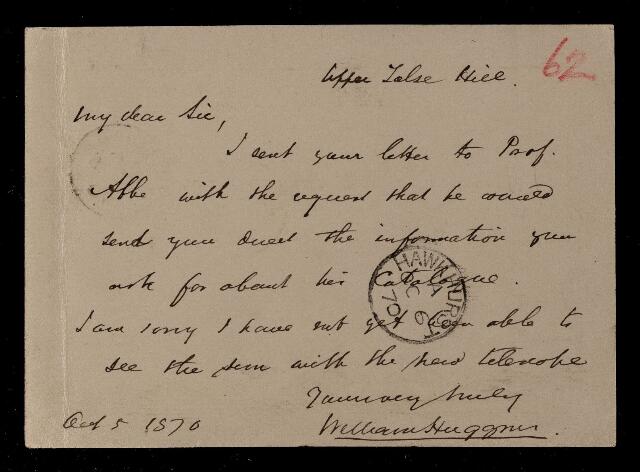 62
Upper Tulse Hill.
My dear Sir,
I sent your letter to Prof.
Abbe with the request that he would
send you direct the information you
ask for about his Catalogue.
I am sorry I have not yet been able to
see the sun with the new telescope
Yours very truly
William Huggins.
Oct 5 1870
HAWKHURST
A
OC 6
70